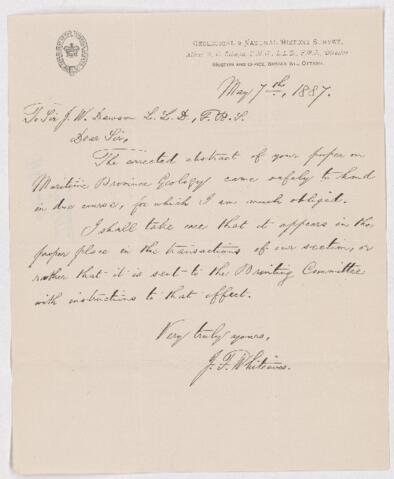 GEOLOGICAL & NATURAL HISTORY SURVEY.
Alfred R. C. Selwyn, C.M.G., L.L.D., F.R.S., Director
MUSEUM AND OFFICE, SUSSEX ST., OTTAWA.
May 7th, 1887.
To Sir J. W. Dawson L.L.D., F.R.S.
Dear Sir,
The corrected abstract of your paper on
Maritime Province Geology came safely to hand
in due course, for which I am much obliged.
I shall take care that it appears in the
proper place in the transactions of our section, or
rather that it is sent to the Printing Committee
with instructions to that effect.
Very truly yours,
J. F. Whiteaves.